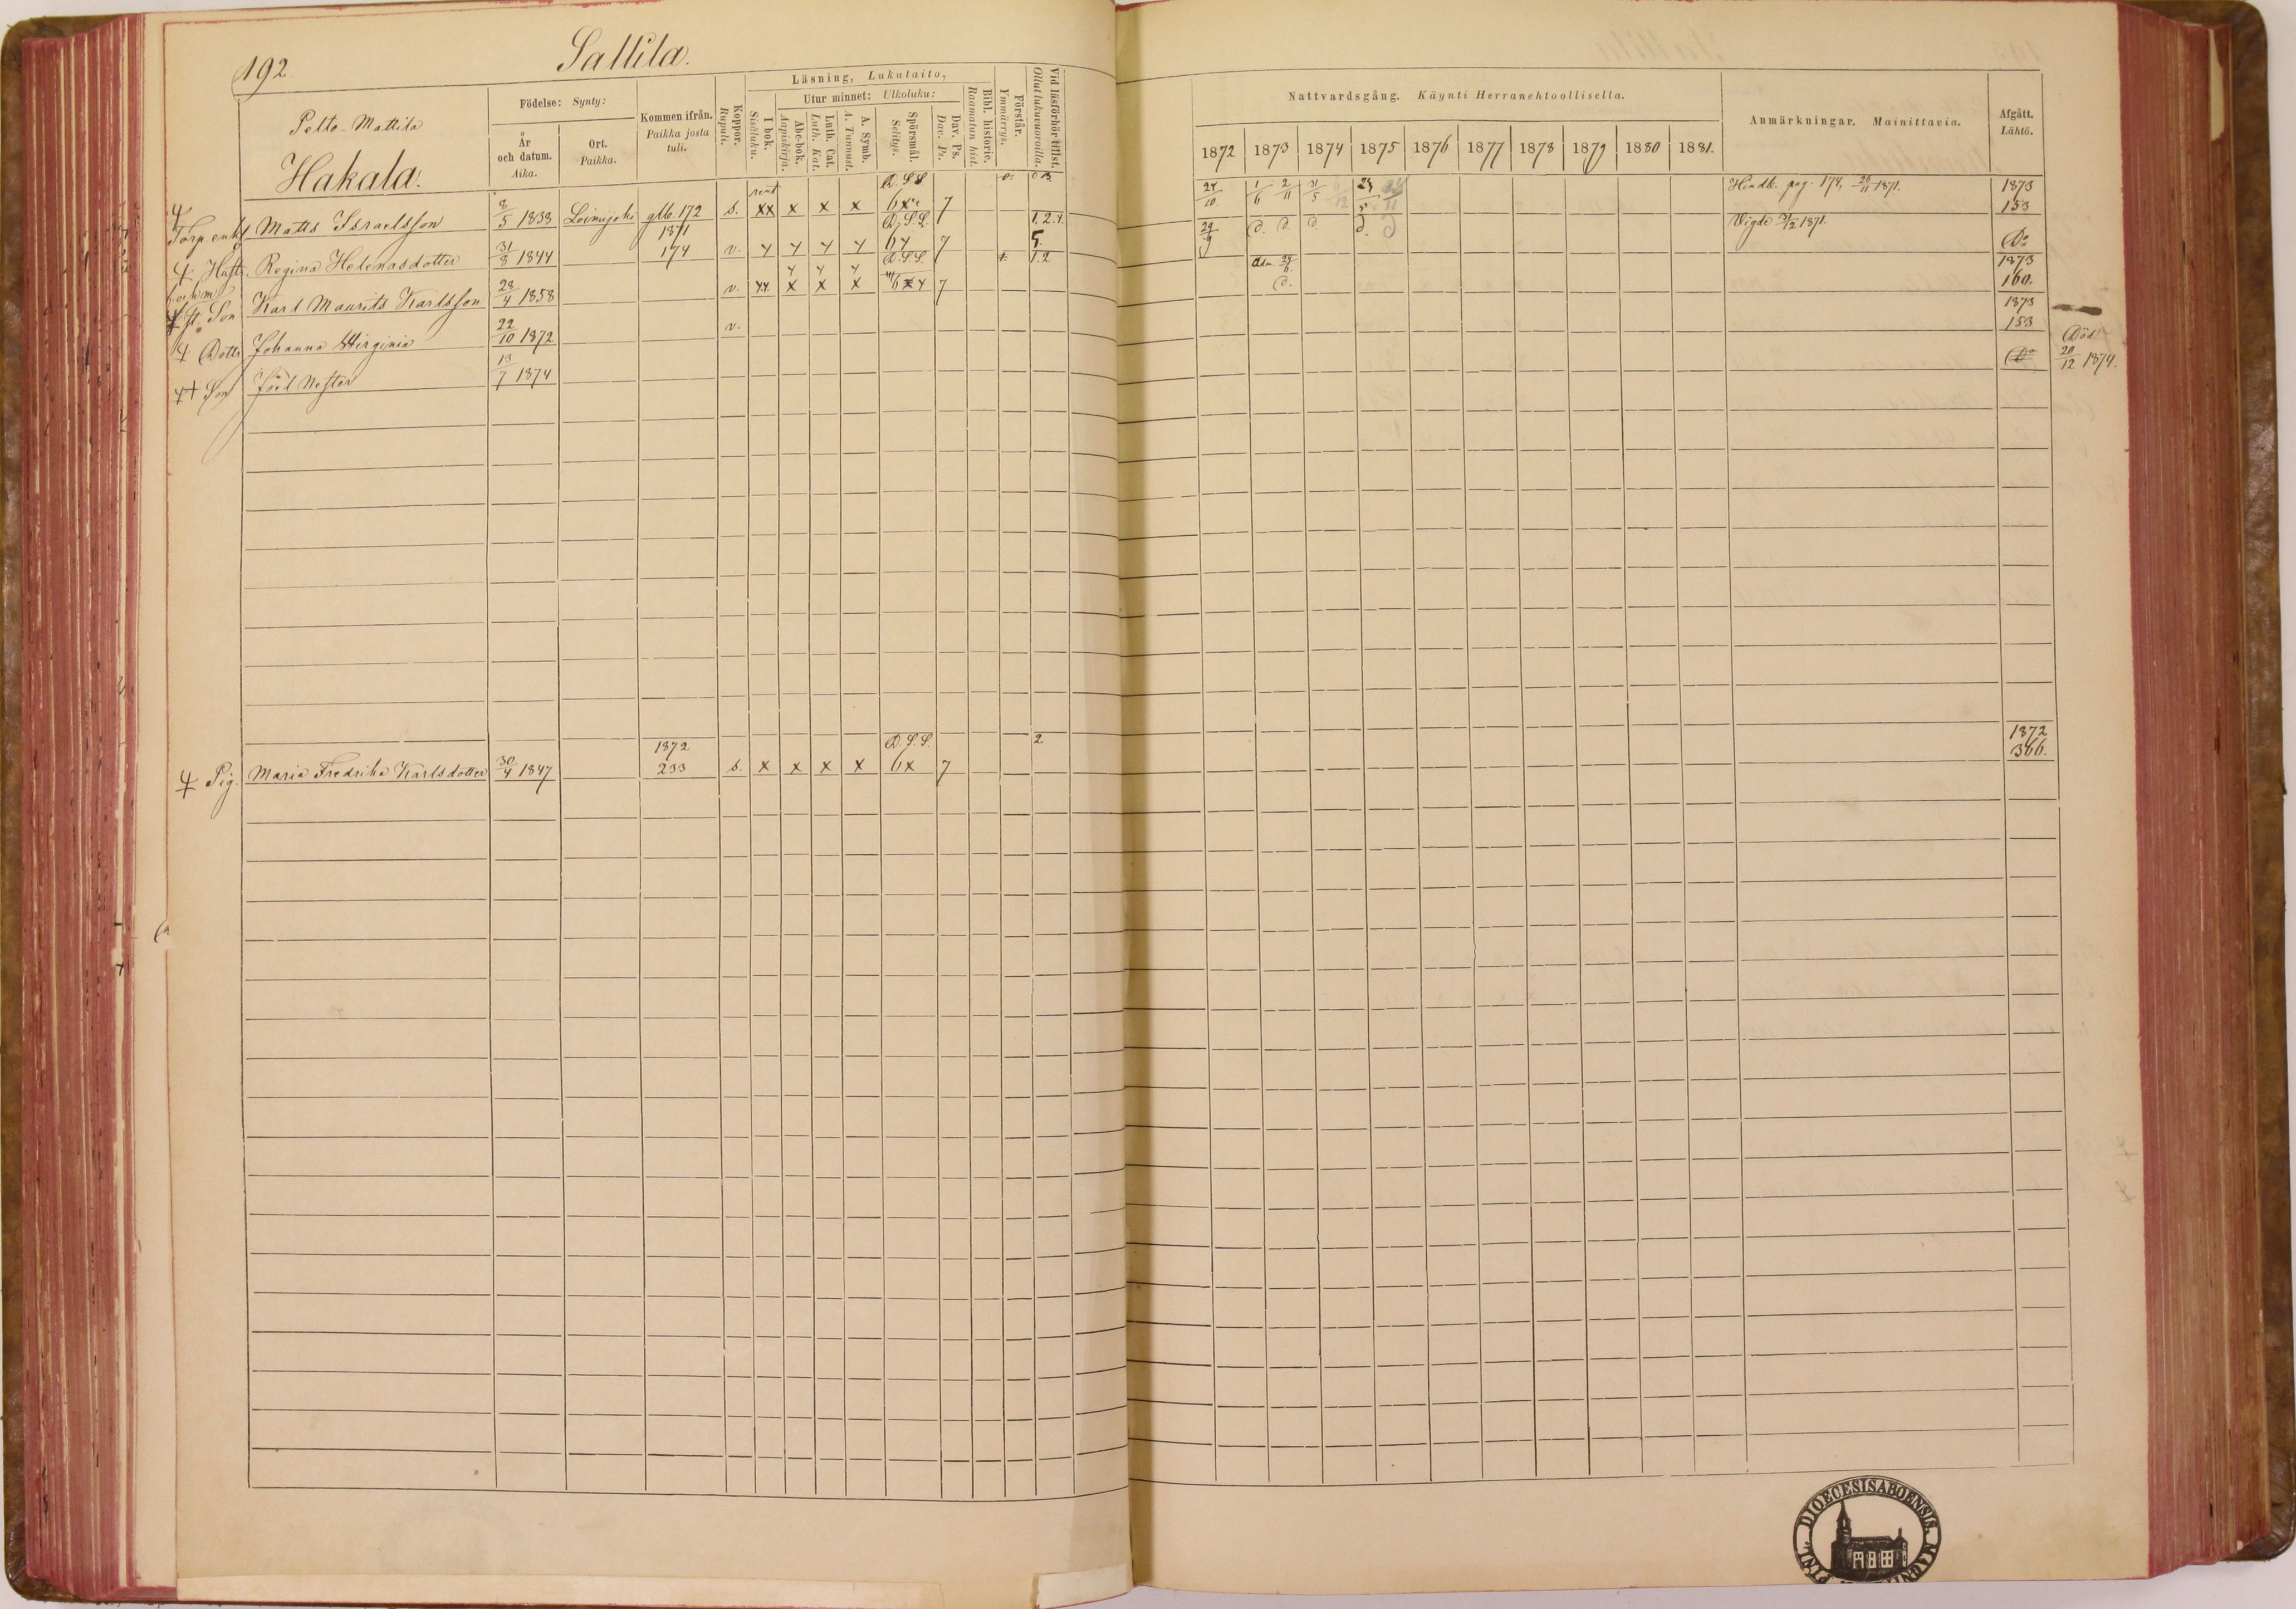 192.
Sallila.
Pelto-Mattila
Hakala.
Födelse: Synty:
År och datum. Aika.
Ort. Paikka.
Kommen ifrån. Paikka josta tuli.
Koppor. Rupuli.
Läsning, Lukutaito,
I bok. Sisäluku.
Utur minnet: Ulkoluku:
Abc-bok. Aapiskirja.
Luth. Cat. Luth. Kat.
A. Symb. A. Tunnust.
Spörsmål. Selitys.
Dav. Ps. Dav. Ps.
Bibl. historie. Raamatun hist.
Förstår. Ymmärrys.
Vid läsförhör tillst. Ollut lukuvuoroilla.
Nattvardsgång. Käynti Herranehtoollisella.
1872 1873 1874 1875 1876 1877 1878 1879 1880 1881.
Anmärkningar. Mainittavia.
Afgått. Lähtö.
Torp enkl Matts Israelsson 8/5 1838 Loimijoki glb. 172 s. xx x x x 6x 7 24/10 1/6 2/11 31/5 Hindb. pag. 174, 26/11 1871. 1873 153
Hust. Regina Helenasdotter 31/8 1844 1871 174 v. y y y y D.S.S. 6y 7 1.2.4. 5. 29/9 d. d. d. d. Vigde 31/12 1871. Do
Son Karl Maurits Karlsson 28/4 1858 v. yy x x x D.S.S. 7 1.2 Adm. 24/6. d. 1873 160.
Dottr Johanna Wirginia 22/10 1872 v. 1873 153
Son Joel Nestor 13/7 1874 Do Död 20/12 1874.
Pig. Maria Fredrika Karlsdotter 30/4 1847 1872 233 s. x x x x D.S.S. 6x 7 2 1872 366.
DIOECESIS ABOENSIS